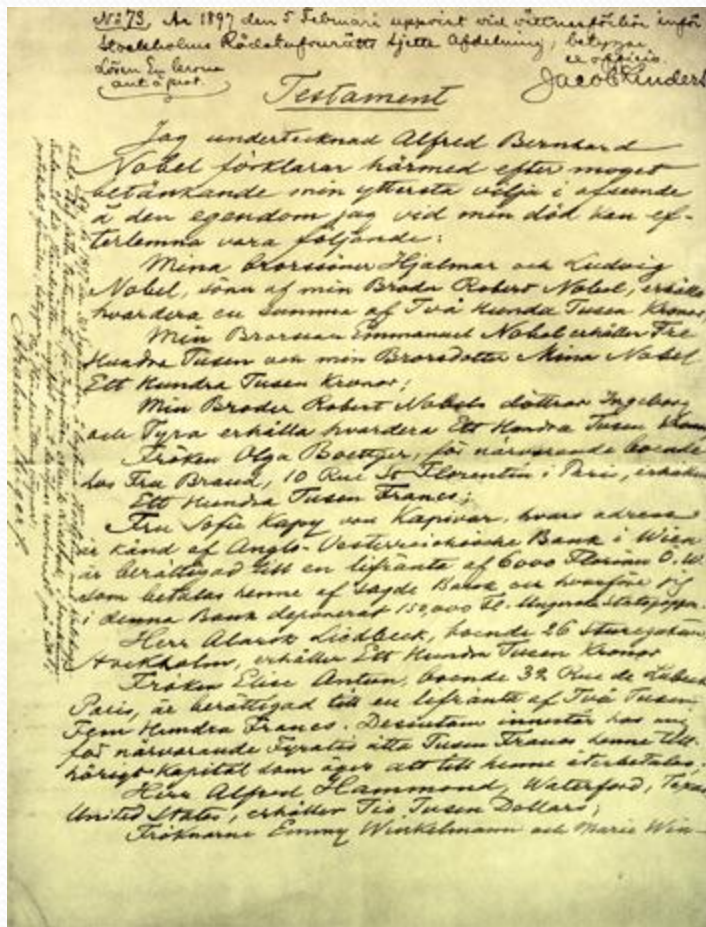 No 73, År 1897 den 5 Februari uppvist vid vittnesförhör inför
Stockholms Rådstufvurätts sjette Afdelning, betygar
ex officio
Lösen En krona
Testament
Jag undertecknad Alfred Bernhard
Nobel förklarar härmed efter moget
betänkande min yttersta vilja i afseende
å den egendom jag vid min död kan ef-
terlemna vara följande:
Mina brorsöner Hjalmar och Ludvig
Nobel, söner af min Broder Robert Nobel, erhålla
hvardera en summa af Två Hundra Tusen Kronor,
Min Brorson Emmanuel Nobel erhåller Tre
Hundra Tusen och min Brorsdotter Mina Nobel
Ett Hundra Tusen Kronor;
Min Broder Robert Nobels döttrar Ingeborg
och Tyra erhålla hvardera Ett Hundra Tusen Kronor
Fröken Olga Boettger, för närvarande boende
hos Fru Brand, 10 Rue St Florentin i Paris, erhåller
Ett Hundra Tusen Francs;
Fru Sofie Kapy von Kapivar, hvars adress
är känd af Anglo-Oesterreichische Bank i Wien
är berättigad till en lifränta af 6000 Florins Ö.W.
som betalas henne af sagde Bank och hvarföre jag
i denna Bank deponerat 150,000 Fl. Ungerska Statspapper.
Herr Alarik Liedbeck, boende 26 Sturegatan,
Stockholm, erhåller Ett Hundra Tusen Kronor
Fröken Elise Antun, boende 32 Rue de Lubeck
Paris, är berättigad till en lifränta af Två Tusen
Fem Hundra Francs. Desutom innestår hos mig
för närvarande Fyratio åtta Tusen Francs henne till-
hörigt Kapital som äger att till henne återbetalas;
Herr Alfred Hammond, Waterford, Texas
United States, erhåller Tio Tusen Dollars;
Fröknarne Emmy Winkelmann och Marie Win-